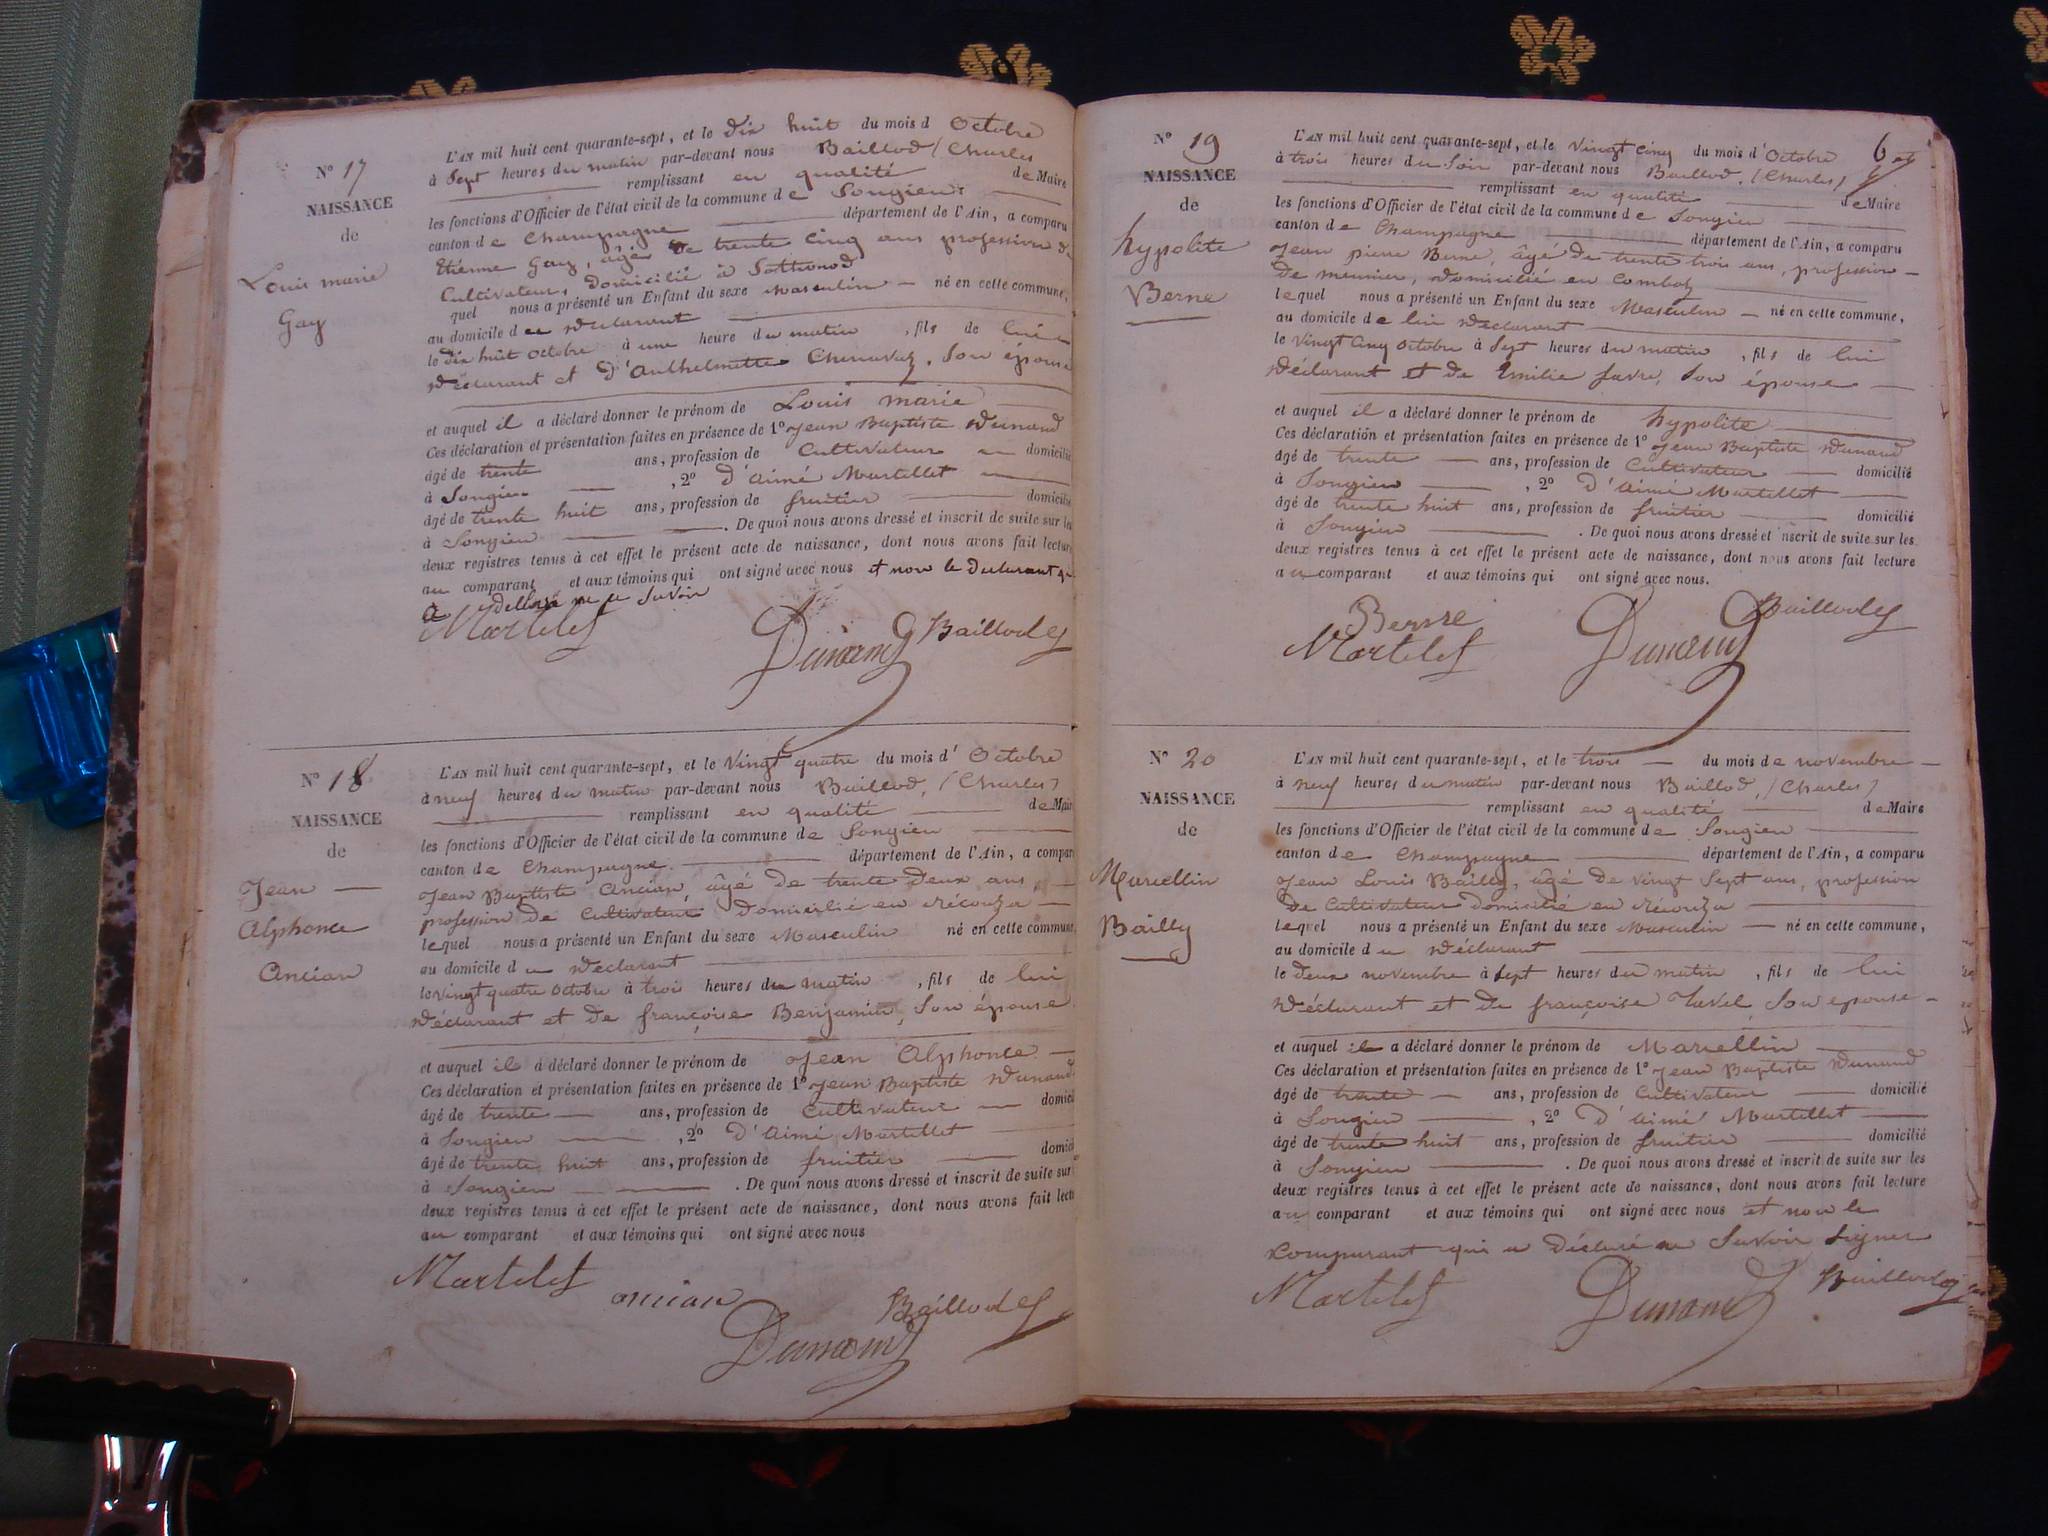 N° 17
NAISSANCE
de
Louis marie
Gay
L'AN mil huit cent quarante-sept, et le dix huit du mois d Octobre
à Sept heures du matin par-devant nous Baillod (Charles
remplissant en qualité de Maire
les fonctions d'Officier de l'état civil de la commune de Songieu
canton de Champagne département de l'Ain, a comparu
Etienne Gay, âgé de trente cinq ans profession de
Cultivateur, domicilié à Sothonod
quel nous a présenté un Enfant du sexe Masculin né en cette commune,
au domicile du déclarant
le dix huit Octobre à une heure du matin , fils de lui
déclarant et d'Anthelmette Chenavaz, Son épouse
et auquel il a déclaré donner le prénom de Louis marie
Ces déclaration et présentation faites en présence de 1° Jean Baptiste Dunand
âgé de trente ans, profession de Cultivateur domicilié
à Songieu , 2° d'Aimé Martellet
âgé de trente huit ans, profession de fruitier domicilié
à Songieu . De quoi nous avons dressé et inscrit de suite sur les
deux registres tenus à cet effet le présent acte de naissance, dont nous avons fait lecture
au comparant et aux témoins qui ont signé avec nous et non le déclarant qui
a déclaré ne le Savoir
Martelet Dunand Baillod
N° 18
NAISSANCE
de
Jean
Alphonce
Ancian
L'AN mil huit cent quarante-sept, et le Vingt quatre du mois d' Octobre
à neuf heures du matin par-devant nous Baillod, (Charles)
remplissant en qualité de Maire
les fonctions d'Officier de l'état civil de la commune de Songieu
canton de Champagne département de l'Ain, a comparu
Jean Baptiste Ancian, âgé de trente deux ans,
profession de Cultivateur domicilié en
lequel nous a présenté un Enfant du sexe Masculin né en cette commune
au domicile du déclarant
le vingt quatre Octobre à trois heures du matin , fils de lui
déclarant et de françoise Benjamin, Son épouse
et auquel il a déclaré donner le prénom de Jean Alphonce
Ces déclaration et présentation faites en présence de 1° Jean Baptiste Dunand
âgé de trente ans, profession de Cultivateur domicil
à Songieu , 2° d'Aimé Martellet
âgé de trente huit ans, profession de fruitier domicil
à Songieu . De quoi nous avons dressé et inscrit de suite sur
deux registres tenus à cet effet le présent acte de naissance, dont nous avons fait lectu
au comparant et aux témoins qui ont signé avec nous
Martelet ancian Baillod
Dunand
N° 19
NAISSANCE
de
hypolite
Berne
6
L'AN mil huit cent quarante-sept, et le Vingt Cinq du mois d' Octobre
à trois heures du Soir par-devant nous Baillod, (Charles)
remplissant en qualité de Maire
les fonctions d'Officier de l'état civil de la commune de Songieu
canton de Champagne département de l'Ain, a comparu
Jean pierre Berne, âgé de trente trois ans, profession
de meunier, domicilié en
lequel nous a présenté un Enfant du sexe Masculin né en cette commune,
au domicile de lui déclarant
le Vingt Cinq Octobre à Sept heures du matin , fils de lui
déclarant et de Emilie favre, Son épouse
et auquel il a déclaré donner le prénom de hypolite
Ces déclaration et présentation faites en présence de 1° Jean Baptiste Dunand
âgé de trente ans, profession de Cultivateur domicilié
à Songieu , 2° d'Aimé Martellet
âgé de trente huit ans, profession de fruitier domicilié
à Songieu . De quoi nous avons dressé et inscrit de suite sur les
deux registres tenus à cet effet le présent acte de naissance, dont nous avons fait lecture
au comparant et aux témoins qui ont signé avec nous.
Baillod
Martelet Dunand
N° 20
NAISSANCE
de
Marcellin
Bailly
L'AN mil huit cent quarante-sept, et le trois du mois de novembre
à neuf heures du matin par-devant nous Baillod, (Charles)
remplissant en qualité de Maire
les fonctions d'Officier de l'état civil de la commune de Songieu
canton de Champagne département de l'Ain, a comparu
Jean Louis Bailly, âgé de vingt Sept ans, profession
de Cultivateur domicilié en
lequel nous a présenté un Enfant du sexe Masculin né en cette commune,
au domicile du déclarant
le deux novembre à Sept heures du matin , fils de lui
déclarant et de françoise Tavel, Son épouse
et auquel il a déclaré donner le prénom de Marcellin
Ces déclaration et présentation faites en présence de 1° Jean Baptiste Dunand
âgé de trente ans, profession de Cultivateur domicilié
à Songieu , 2° d'Aimé Martellet
âgé de trente huit ans, profession de fruitier domicilié
à Songieu . De quoi nous avons dressé et inscrit de suite sur les
deux registres tenus à cet effet le présent acte de naissance, dont nous avons fait lecture
au comparant et aux témoins qui ont signé avec nous et non le
comparant qui a déclaré ne Savoir Signer
Martelet Dunand Baillod